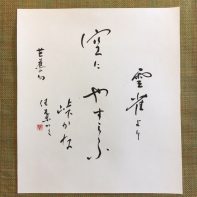 雲雀より
空に
やすらふ
峠かな
芭蕉の句